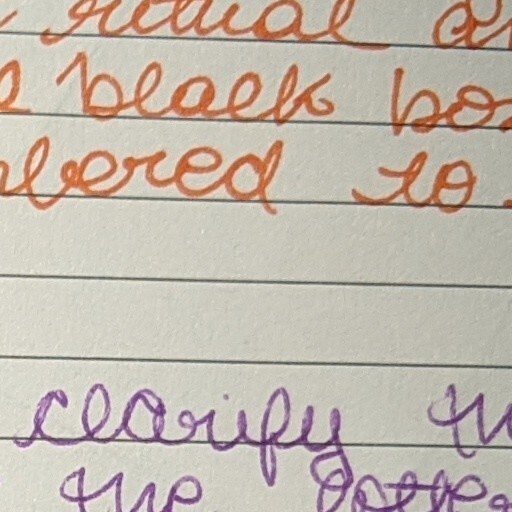 ritual
black bo
bered to
clarify
the lotte